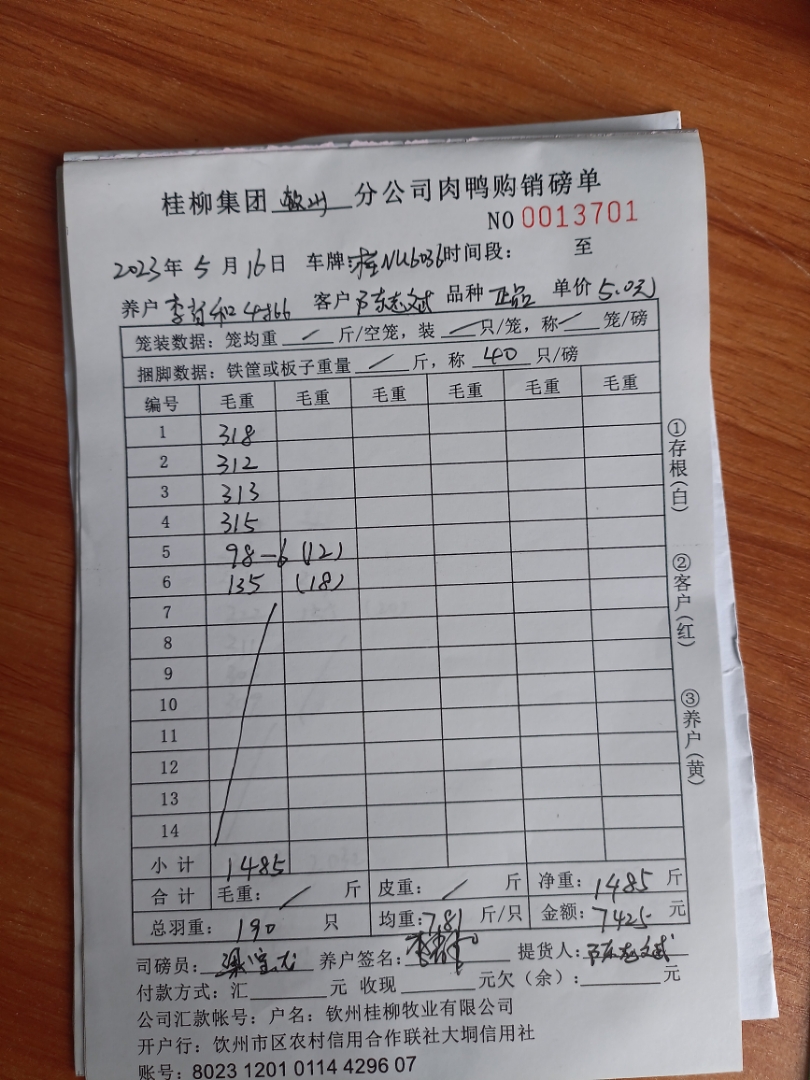 桂柳集团 钦州 分公司肉鸭购销磅单
NO 0013701
2023年 5 月 16日 车牌: 桂NU6036 时间段: 至
养户 李 和 客户 东志文斌 品种 正品 单价 5.0元
笼装数据: 笼均重 / 斤/空笼, 装 / 只/笼, 称 / 笼/磅
捆脚数据: 铁筐或板子重量 / 斤, 称 40 只/磅
编号 毛重 毛重 毛重 毛重 毛重 毛重
1 318
2 312
3 313
4 315
5 98-6 (12)
6 135 (18)
7
8
9
10
11
12
13
14
小计 1485
合计 毛重: / 斤 皮重: / 斤 净重: 1485 斤
总羽重: 190 只 均重: 7.81 斤/只 金额: 7425 元
司磅员: 养户签名: 提货人: 东志文斌
付款方式: 汇 元 收现 元欠（余）: 元
公司汇款帐号: 户名: 钦州桂柳牧业有限公司
开户行: 饮州市区农村信用合作联社大垌信用社
账号: 8023 1201 0114 4296 07
①存根(白)
②客户(红)
③养户(黄)